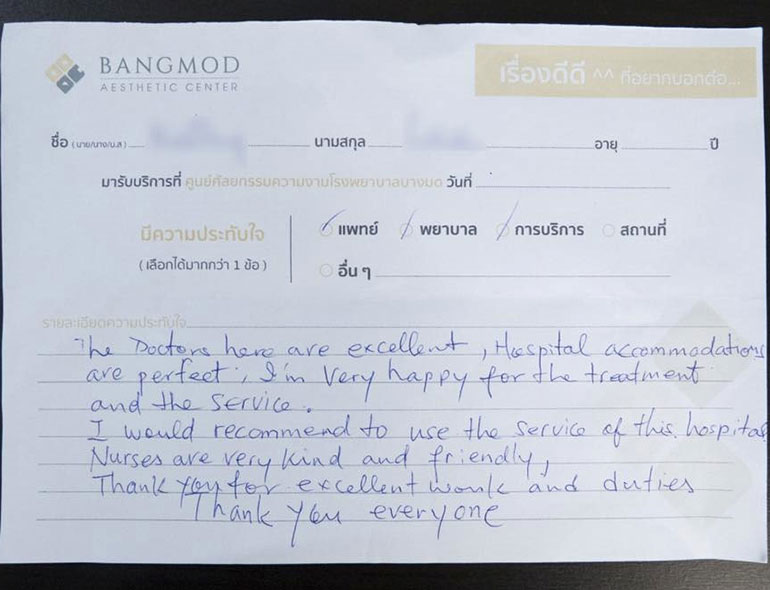 BANGMOD
AESTHETIC CENTER
เรื่องดีดี ^^ ที่อยากบอกต่อ...
ชื่อ (นาย/นาง/น.ส) นามสกุล อายุ ปี
มารับบริการที่ ศูนย์ศัลยกรรมความงามโรงพยาบาลบางมด วันที่
มีความประทับใจ
(เลือกได้มากกว่า 1 ข้อ)
แพทย์ พยาบาล การบริการ สถานที่
อื่น ๆ
รายละเอียดความประทับใจ
The Doctors here are excellent, Hospital accommodations
are perfect, I'm very happy for the treatment
and the service.
I would recommend to use the service of this hospital
Nurses are very kind and friendly,
Thank you for excellent work and duties
Thank you everyone